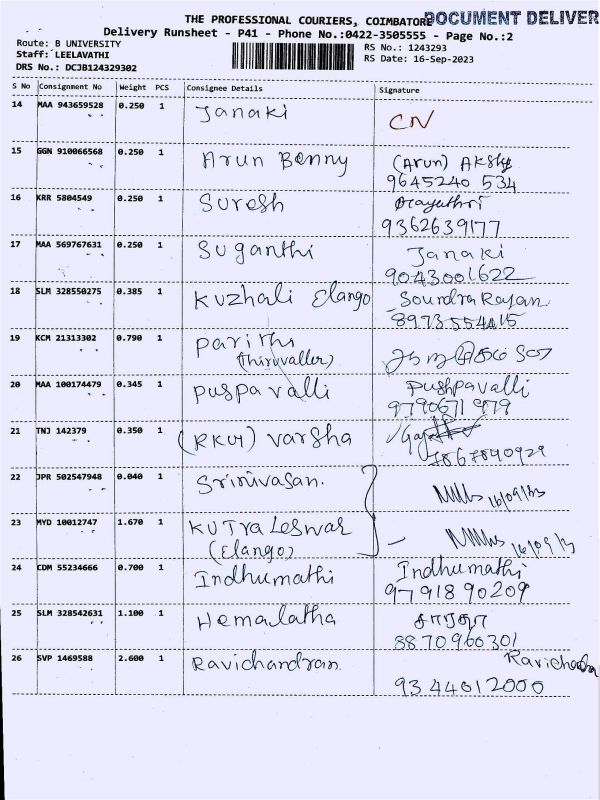 THE PROFESSIONAL COURIERS, COIMBATORE
DOCUMENT DELIVER
Delivery Runsheet - P41 - Phone No.:0422-3505555 - Page No.:2
Route: B UNIVERSITY
Staff: LEELAVATHI
DRS No.: DCJB124329302
RS No.: 1243293
RS Date: 16-Sep-2023
S No Consignment No Weight PCS Consignee Details Signature
14 MAA 943659528 0.250 1 Janaki CN
15 GGN 910066568 0.250 1 Arun Benny (Arun)
9645240 534
16 KRR 5804549 0.250 1 Suresh
9362639177
17 MAA 569767631 0.250 1 Suganthi Janaki
9043001622
18 SLM 328550275 0.385 1 Kuzhali Elango Soundra Rajan
8973554415
19 KCM 21313302 0.790 1
(Thiruvaller)
20 MAA 100174479 0.345 1 Puspavalli Pushpavalli
9790671979
21 TNJ 142379 0.350 1 (RKM) Varsha
7867840929
22 JPR 502547948 0.040 1 Srinivasan.
23 MYD 10012747 1.670 1
(Elango)
24 CDM 55234666 0.700 1 Indhumathi Indhumathi
9791890209
25 SLM 328542631 1.100 1 Hemalatha
8870960301
26 SVP 1469588 2.600 1 Ravichandran Ravichandra
9344012000